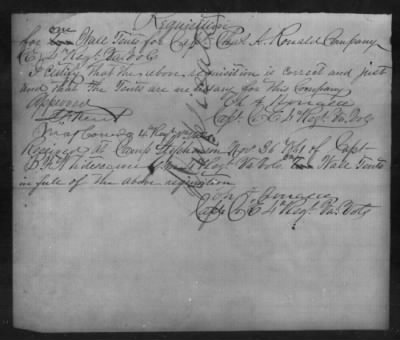 Requisition
for one Wall Tents for Capt Chas A. Ronald Company
E 4 Regt Va Vols
I Certify that the above requisition is correct and just
and that the Tents are necessary for this Company
Approved Ch A Ronald
Capt Co E 4th Regt Va Vols
Maj Comdg 4 Regt
Received at Camp Stephenson Nov 26 1861 of Capt
Regt Va Vols one Wall Tents
in full of the above requisition
Ch A Ronald
Capt Co E 4th Regt Va. Vols